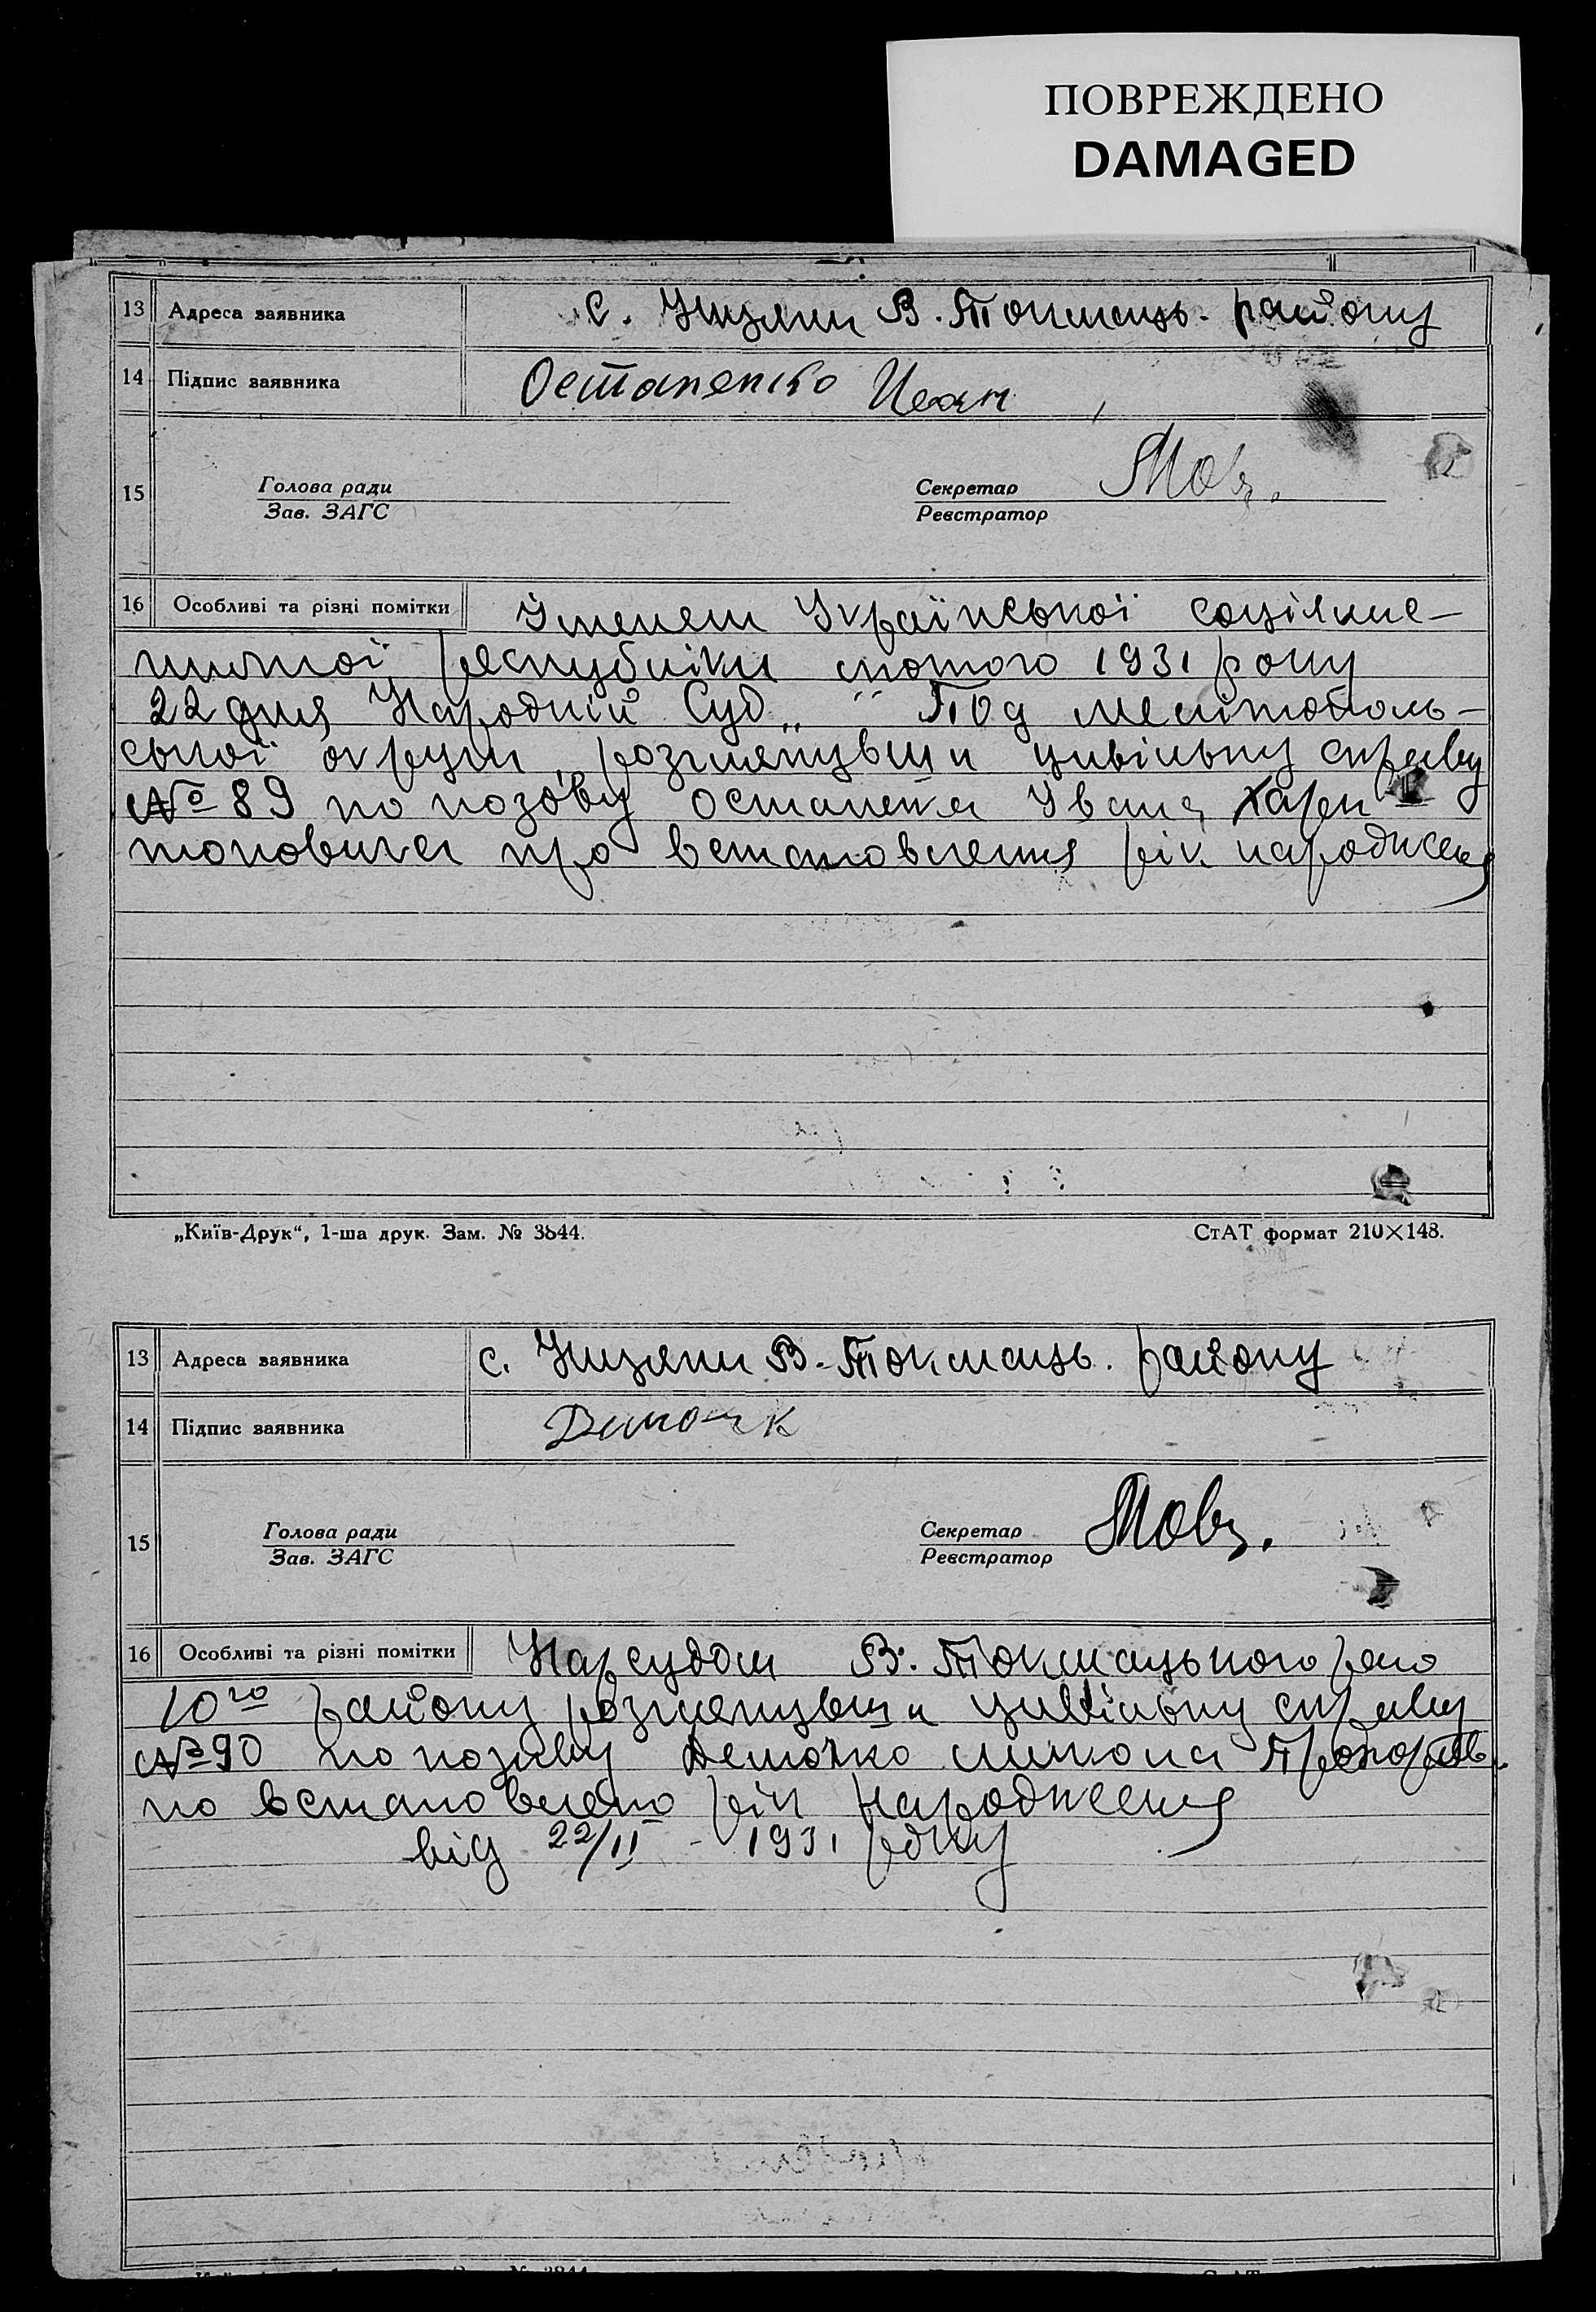 ПОВРЕЖДЕНО
DAMAGED
13 Адреса заявника с. В. Токмаць. району
14 Підпис заявника Остапенко Иван
15 Голова ради Секретар
Зав. ЗАГС Реєстратор
16 Особливі та різні помітки Іменем Української соціяліс-
республіки лютого 1931 року
22 дня Народній Суд „ “ Мелітополь-
ської округи, розглянувши цивільну справу
№ 89 по позову Остапенка Івана Хари-
тоновича про встановлення рік народження
„Київ-Друк“, 1-ша друк. Зам. № 3844.
СтАТ формат 210×148.
13 Адреса заявника с. В-Токмаць. району
14 Підпис заявника
15 Голова ради Секретар
Зав. ЗАГС Реєстратор
16 Особливі та різні помітки Нарсудом В. Токмацького
10го району розглянувши цивільну справу
№ 90 по позиву
по встановлено рік народження
від 22/II - 1931 року